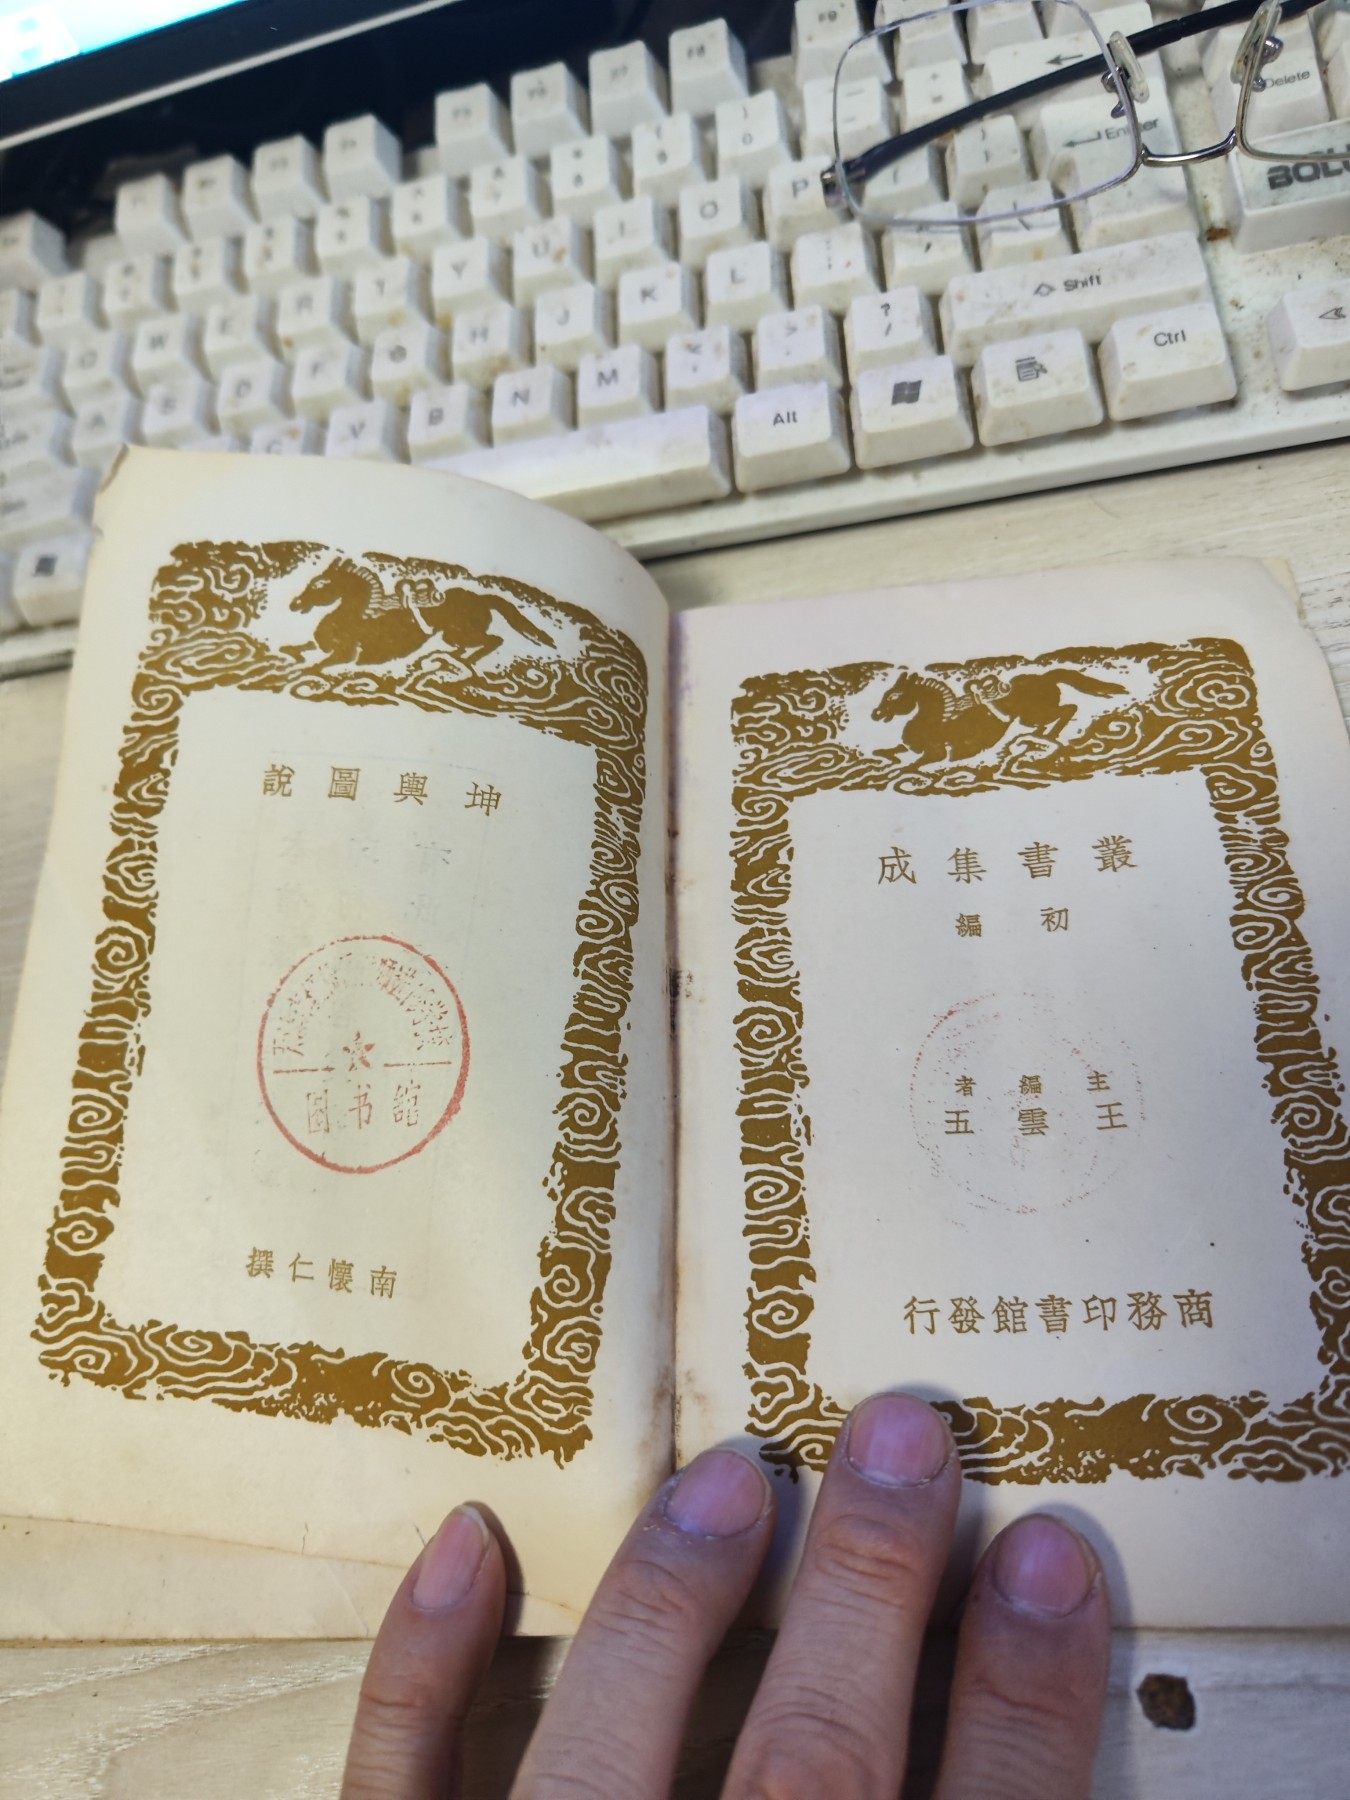 Delete
Enter
P
O
I
U
Y
T
R
E
W
L
K
J
H
G
F
D
S
A
Shift
?
/
M
N
B
V
C
Alt
Ctrl
坤輿圖說
图书馆
南懷仁撰
叢書集成
初編
主編者
王雲五
商務印書館發行